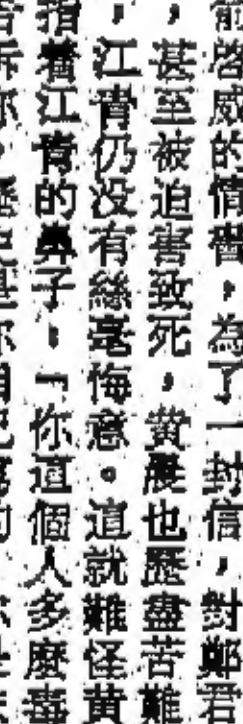 前啓威的情書，為了一封信，對鄭君
，甚至被迫害致死，黄晨也歷盡苦難
，江青仍没有絲毫悔意。這就難怪黄
指着江青的鼻子，「你這個人多麼毒
告訴你，